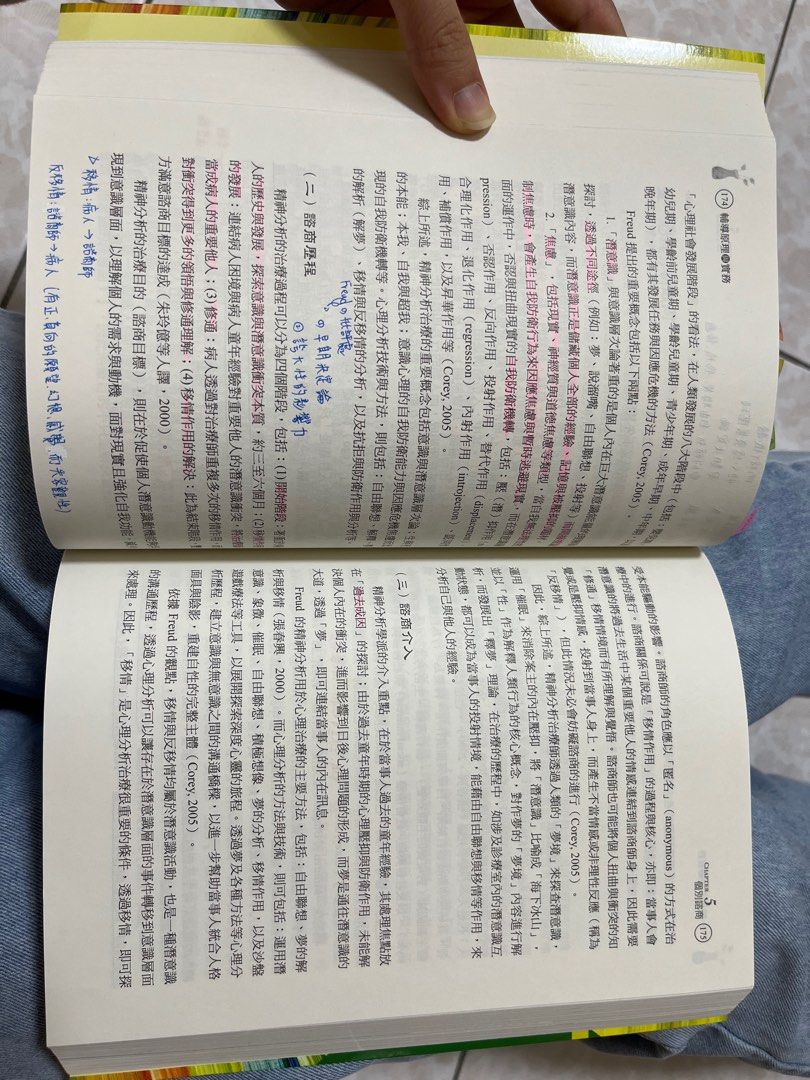 174 輔導原理與實務
「心理社會發展階段」的看法，在人類發展的八大階段中（包括：
幼兒期、學齡前兒童期、學齡兒童期、青少年期、成年早期、中年期、
晚年期），都有其發展任務與因應危機的方法（Corey, 2005）。
Freud 提出的重要概念包括以下兩點：
1.「潛意識」與意識層次論著重的是個人內在巨大潛意識能量的
探討，透過不同途徑（例如：夢、說溜嘴、自由聯想、投射等）
潛意識內容，而潛意識正是儲藏個人全部的經驗、記憶與被壓抑的
2.「焦慮」包括現實、神經質與道德焦慮等類型，當自我
制焦慮時，會產生自我防衛行為來因應焦慮與暫時逃避現實，而在潛意識
面的運作中，否認與扭曲現實的自我防衛機轉，包括：壓（潛）抑作
pression）、否認作用、反向作用、投射作用、替代作用（displacement）、
合理化作用、退化作用（regression）、內射作用（introjection）、
用、補償作用，以及昇華作用等（Corey, 2005）。
綜上所述，精神分析治療的重要概念包括意識與潛意識層次論、
的本能；本我、自我與超我；意識心理的自我防衛能力與因應危機
現的自我防衛機轉等。心理分析技術與方法，則包括：自由聯想、
的解析（解夢）、移情與反移情的分析，以及抗拒與防衛作用與分析等。
（二）諮商歷程
Freud的
早期決定論
性的影響力
精神分析的治療過程可以分為四個階段，包括：(1)開始階段：
人的歷史與發展，探索意識與潛意識衝突本質，約三至六個月；(2)移情作用
的發展：連結病人困境與病人童年經驗對重要他人的潛意識衝突，
當成病人的重要他人；(3)修通：病人透過對治療師重複多次的移情作用，
對衝突得到更多的領悟與修通理解；(4)移情作用的解決：此為結束階段，
方滿意諮商目標的達成（朱玲億等人譯，2000）。
精神分析的治療目的（諮商目標），則在於促使個人潛意識動機
現到意識層面，以理解個人的需求與動機，面對現實且強化自我功能，
移情：病人→諮商師
反移情：諮商師→病人（有正負向的願望、幻想、感覺，而失客觀性）
CHAPTER 5
個別諮商 175
受本能驅動的影響。諮商師的角色應以「匿名」（anonymous）的方式在治
療中的進行。諮商關係可說是「移情作用」的過程與核心，亦即：當事人會
潛意識的將過去生活中某個重要他人的情感連結到諮商師身上，因此需要
「修通」移情情境而有所理解與覺悟。諮商師也可能將個人扭曲與衝突的知
覺或是壓抑情感，投射到當事人身上，而產生不當情感或非理性反應（稱為
「反移情」），但此情況未必會妨礙諮商的進行（Corey, 2005）。
因此，綜上所述，精神分析治療師透過人類的「夢境」來探查潛意識，
運用「催眠」來消除案主的內在壓抑，將「潛意識」比喻成「海下冰山」，
並以「性」作為解釋人類行為的核心概念，對作夢的「夢境」內容進行解
析，而發展出「釋夢」理論，在治療的歷程中，如涉及診療室內的潛意識互
動狀態，都可以成為當事人的投射情境，能藉由自由聯想與移情等作用，來
分析自己與他人的經驗。
（三）諮商介入
精神分析學派的介入重點，在於當事人過去的童年經驗，其處理焦點放
在「過去成因」的探討；由於過去童年時期的心理壓抑與防衛作用，未能解
決個人內在的衝突，進而影響到日後心理問題的形成，而夢是通往潛意識的
大道，透過「夢」，即可連結當事人的內在訊息。
Freud 的精神分析用於心理治療的主要方法，包括：自由聯想、夢的解
析與移情（張春興，2000）。而心理分析的方法與技術，則可包括：運用潛
意識、象徵、催眠、自由聯想、積極想像、夢的分析、移情作用，以及沙盤
遊戲療法等工具，以展開探索深度心靈的旅程。透過夢及各種方法等心理分
析歷程，建立意識與無意識之間的溝通橋樑，以進一步幫助當事人統合人格
面具與陰影，重建自性的完整主體（Corey, 2005）。
依據 Freud 的觀點，移情與反移情均屬於潛意識活動，也是一種潛意識
的溝通歷程，透過心理分析可以讓存在於潛意識層面的事件轉移到意識層面
來處理。因此，「移情」是心理分析治療很重要的條件，透過移情，即可探